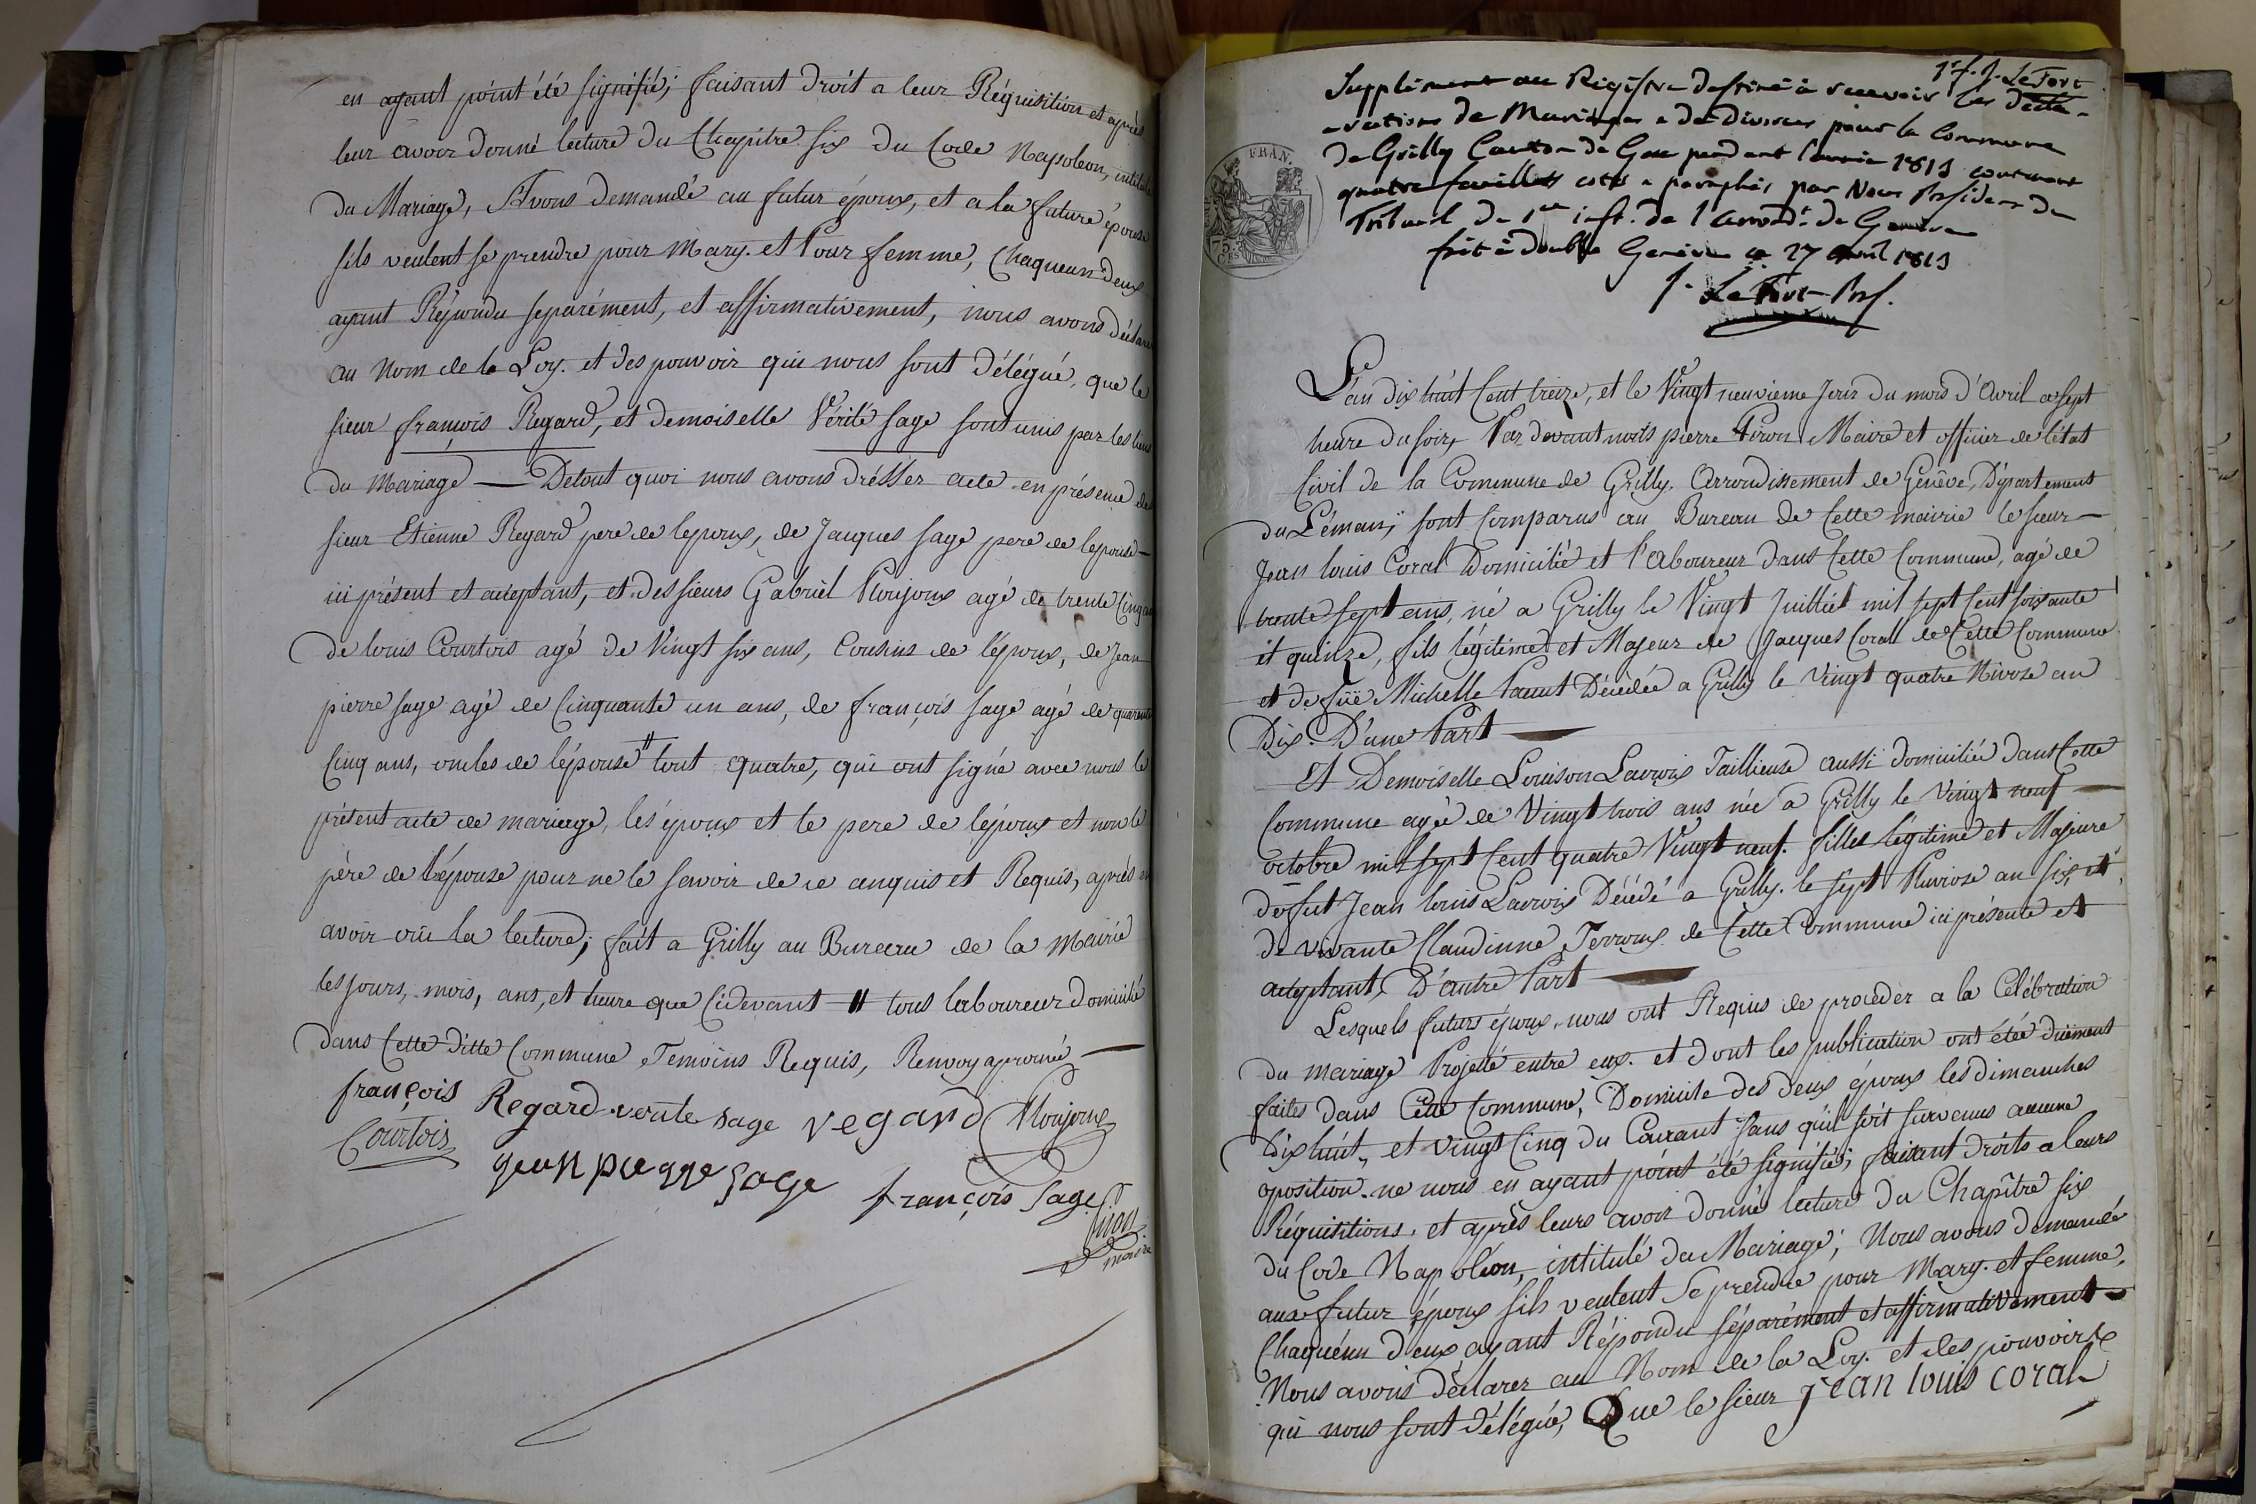 en ayant point été signifié; faisant droit a leur Réquisition et après
leur avoir donné lecture du Chapitre six du Code Napoléon, intitulé
du Mariage, Avons demandé au futur époux, et a la future épouse
sils veulent se prendre pour Mary. et Pour femme, Chaqueun deux
ayant Répondu separément, et affirmativement, nous avons déclaré
au Nom de la Loy. et des pouvoir qui nous sont délégué, que le
sieur françois Regard, et demoiselle Vérité sage sont unis par les liens
du Mariage — De tout quoi nous avons drésser acte en présence de
sieur Etienne Regard pere de lepoux, de Jacques sage pere de lepouse —
ici présent et aceptant, et des sieurs Gabriel Ploujoux agé de trente Cinq ans
de louis Courtois agé de Vingt six ans, Cousins de l'époux, de Jean
pierre sage agé de Cinquante un ans, de françois sage agé de quarente
Cinq ans, oncles de l'épouse " tout quatre, qui ont signé avec nous le
présent acte de mariage, les époux et le pere de l'époux et non le
père de l'épouse pour ne le savoir de ce enquis et Requis, après en
avoir oüi la lecture; fait a Grilly au Bureau de la Mairie
les jours, mois, ans, et heure que Cidevant — " tous laboureur domicilié
dans Cette ditte Commune Temoins Requis, Renvoy aprouvé —
françois Regard verite sage regard Ploujoux
Courtois
jean pierre sage françois Sage
Piron
maire
J. J. LeFort
Supplément au Régistre destiné à recevoir les décla-
-rations de Mariages & de Divorces pour la Commune
de Grilly Canton de Gex pendant l'année 1813 contenant
quatre feuillets cotés & paraphés par Nous Président du
Tribunal de 1ere inst. de l'arrondt. de Genève
fait à double Genève ce 27 avril 1813
J. LeFort Pres.
FRAN.
75.
CES
L'an dix huit Cent treize, et le Vingt neuvieme Jour du mois d'Avril a sept
heure du soir, Par devant nous pierre Piron Maire et officier de l'état
Civil de la Commune de Grilly. Arrondissement de Genêve, Département
du Léman, sont Comparus au Bureau de Cette mairie le sieur —
Jean louis Coral Domicilié et l'aboureur dans Cette Commune, agé de
trente sept ans, né a Grilly le Vingt Juilliet mil sept Cent soixante
et quinze, fils légitime et Majeur de Jacques Coral de Cette Commune
et de füe Michelle Panut Décédée a Grilly le vingt quatre Nivose an
Dix. D'une Part —
Et Demoiselle Louison Lacroix Taillieuse aussi domiciliée dans Cette
Commune agée de Vingt trois ans née a Grilly le vingt neuf —
octobre mil sept Cent quatre Vingt neuf. filles légitime et Majeure
de fut Jean louis Lacroix Décédé a Grilly. le sept Pluviose an six, et
de vivante Claudinne Terroux de Cette Commune ici présente et
aceptant, D'autre Part —
Lesquels futurs époux, nous ont Requis de proceder a la Célébration
du mariage Projetté entre eux. et dont les publication ont étée duëment
faites dans Cette Commune, Domicile des deux époux les dimanches
dix huit, et vingt Cinq du Courant sans qu'il soit survenus aucune
oposition. ne nous en ayant point été signifiée; faisant droits a leurs
Réquisitions, et après leurs avoir donné lecture du Chapître six
du Code Napoléon, intitulé du Mariage; Nous avons demandé
aux futur époux sils veulent se prendre pour Mary. et femme,
Chaquéun d'eux ayant Répondu séparément et affirmativement —
Nous avons déclarer au Nom de la Loy. et des pouvoirs
qui nous sont délégué, Que le sieur jean louis coral